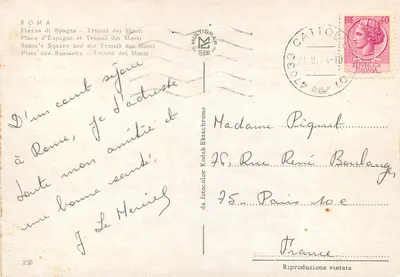 ROMA
Piazza di Spagna - Trinità dei Monti
Place d'Espagne et Trinità dei Monti
Spain's Square and the Trinità dei Monti
Platz des Spaniens - Trinità dei Monti
D'un court séjour
à Rome, je t'adresse
toute mon amitié et
une bonne santé.
J. Le
258
da fotocolor Kodak Ektachrome
47033 CATTO
40
Madame Piquet
76, Rue René Boulanger
75 - Paris 10e
France
Riproduzione vietata